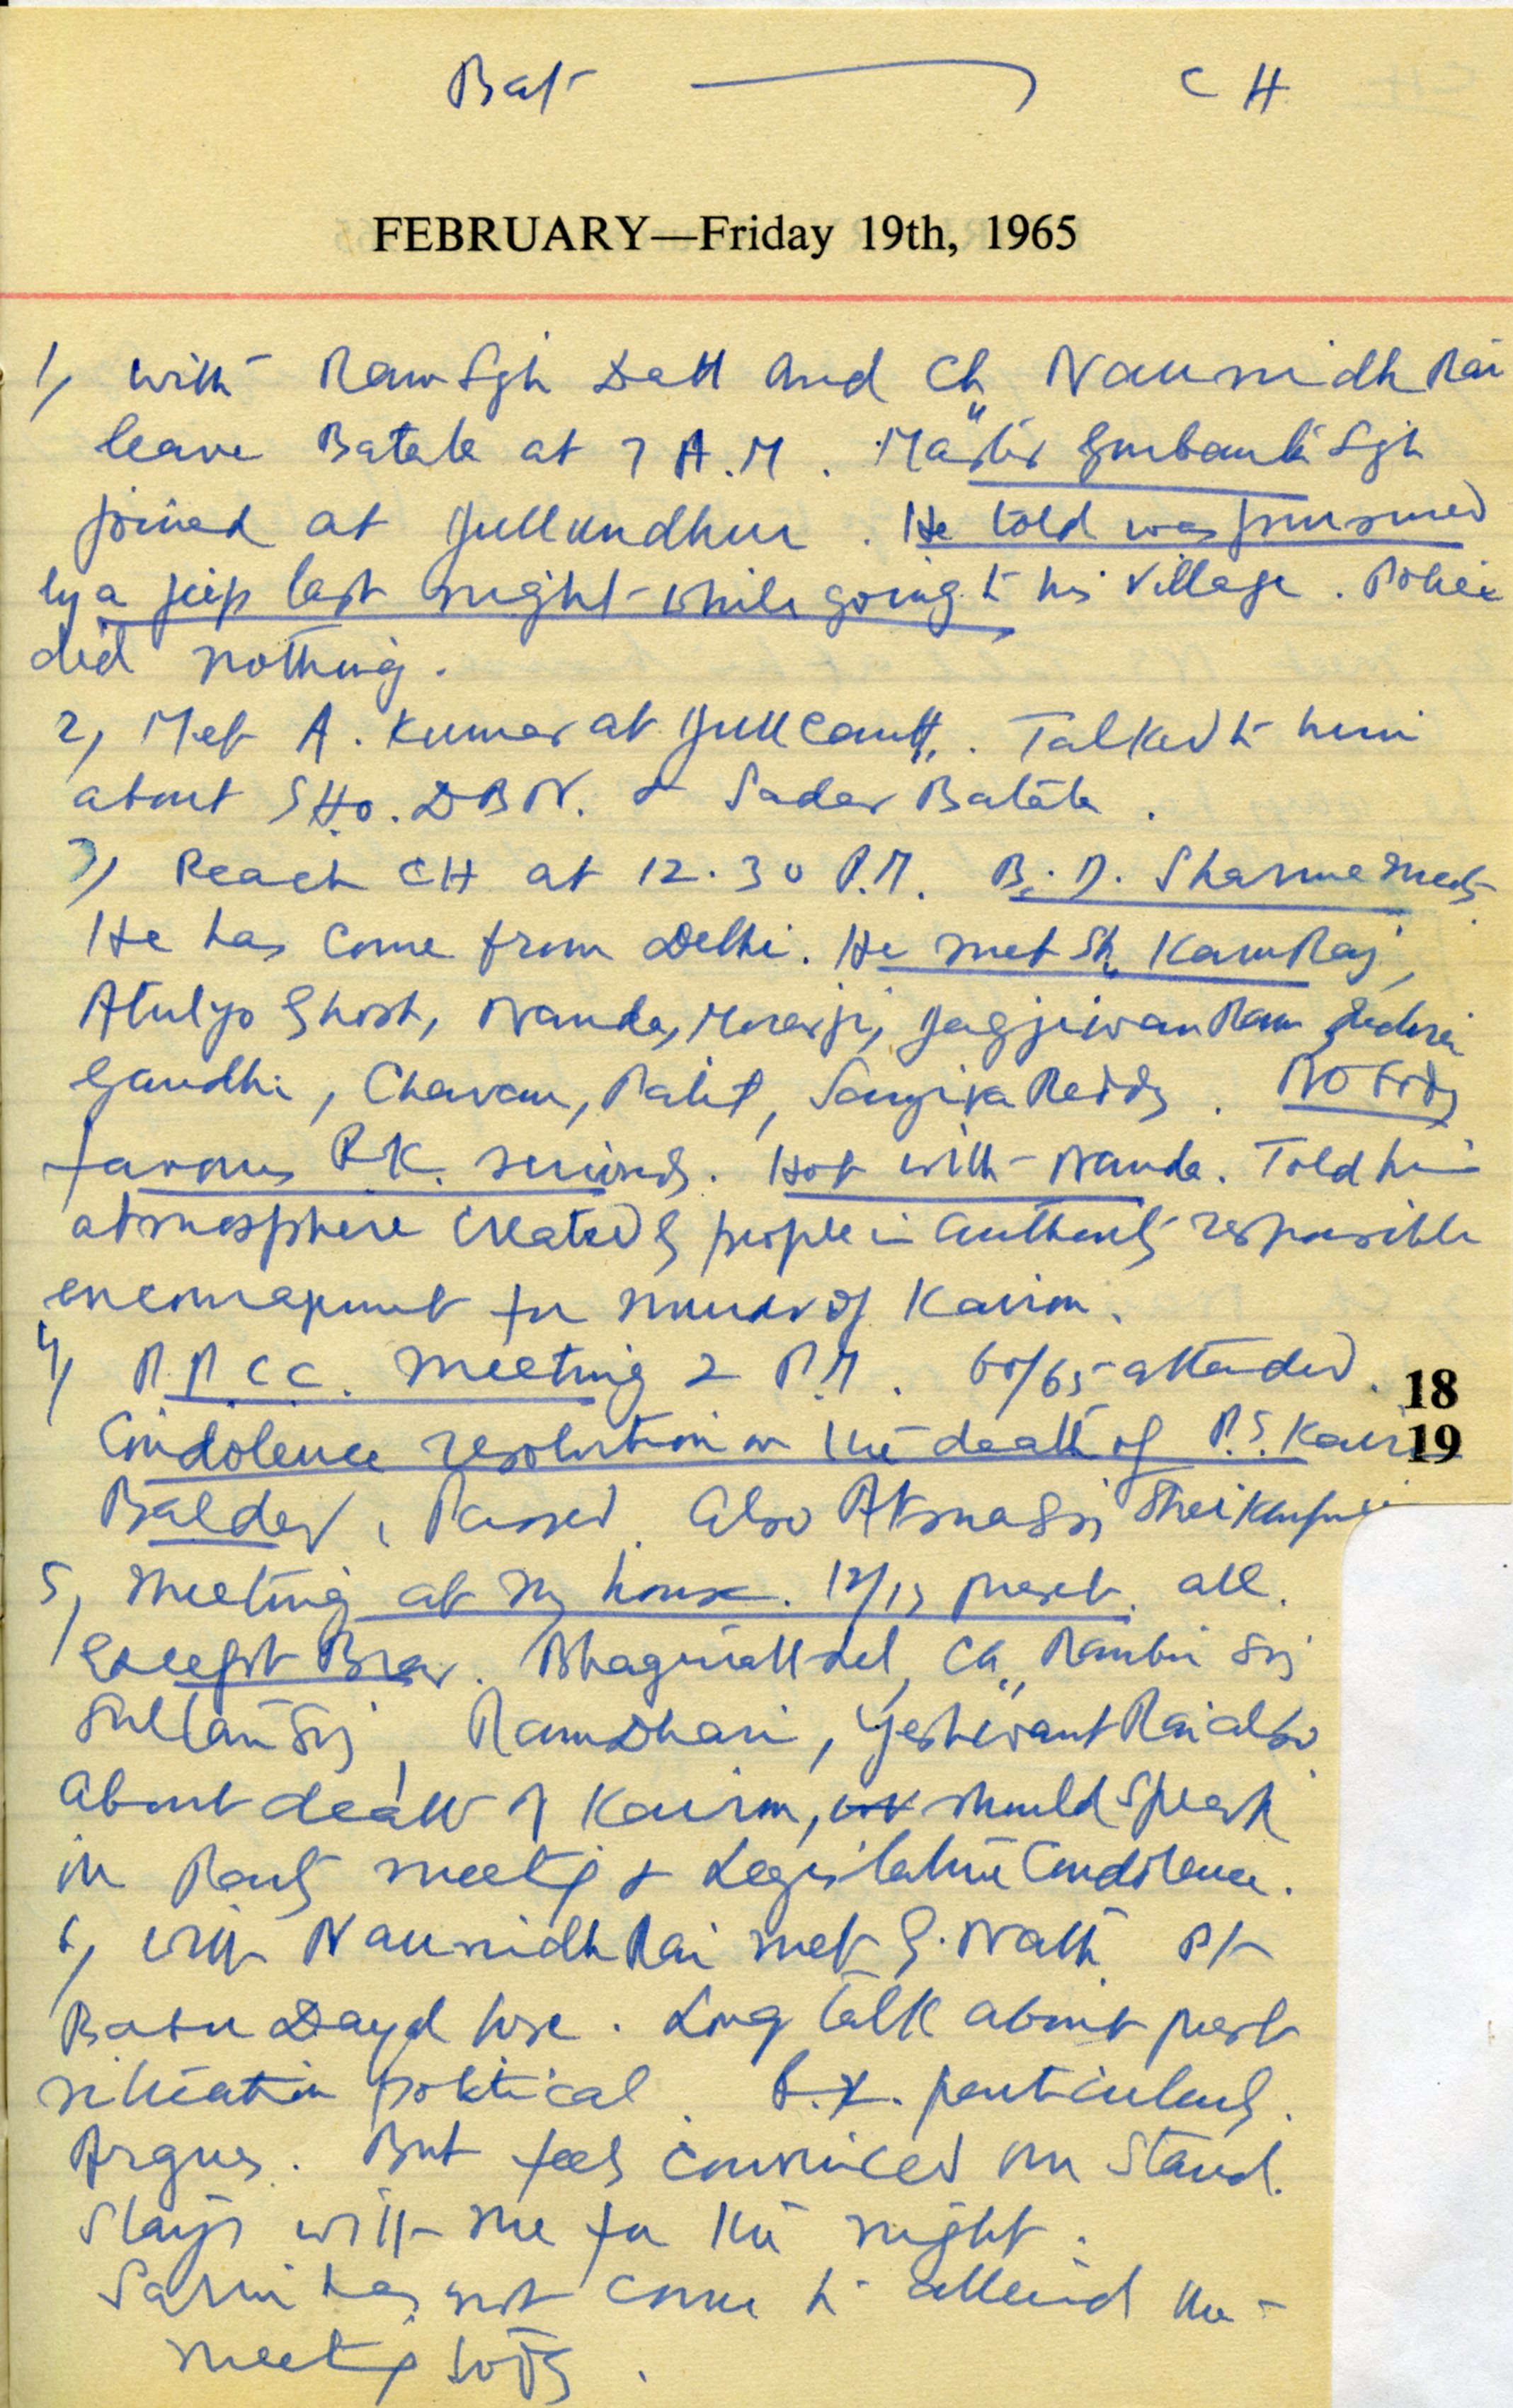 Bat — CH
FEBRUARY—Friday 19th, 1965
1, With Ram Sgh Datt and Ch. Naunidh Rai
leave Batala at 7 A.M. Master Gurbanta Sgh
joined at Jullundhur. He told was pursued
by a jeep last night while going to his village. Police
did nothing.
2, Met A. Kumar at Jull Cantt. Talked to him
about SHO. DBN. & Sadar Batala.
3, Reach CH at 12.30 P.M. B.D. Sharma meets
He has come from Delhi. He met Sh. Kamraj,
Atulyo Ghosh, Nanda, Morarji, Jagjiwan Ram, Indira
Gandhi, Chavan, Patil, Sanjiva Reddy. No body
favours R.K. seriously. Hot with Nanda. Told him
atmosphere created by people in authority responsible
encouragement for murder of Kairon.
4, P.P.C.C. meeting 2 P.M. 60/65 attended. 18
Condolence resolution on the death of P.S. Kairon 19
Baldev, Passed. Also Atma Sgh
5, Meeting at my house. 12/13 present. all.
except Brar. Bhagirath Lal, Ch. Ranbir Sgh
Sultan Sgh, Ram Dhari, Yeshwant Rai also
About death of Kairon, should speak
in Party meeting & Legislature Condolence.
6, With Naunidh Rai met G. Nath. At
Dayal hse. Long talk about present
situation political. particularly.
Argues. But feels convinced our stand.
Stays with me for the night.
has not come to attend the
meeting today.